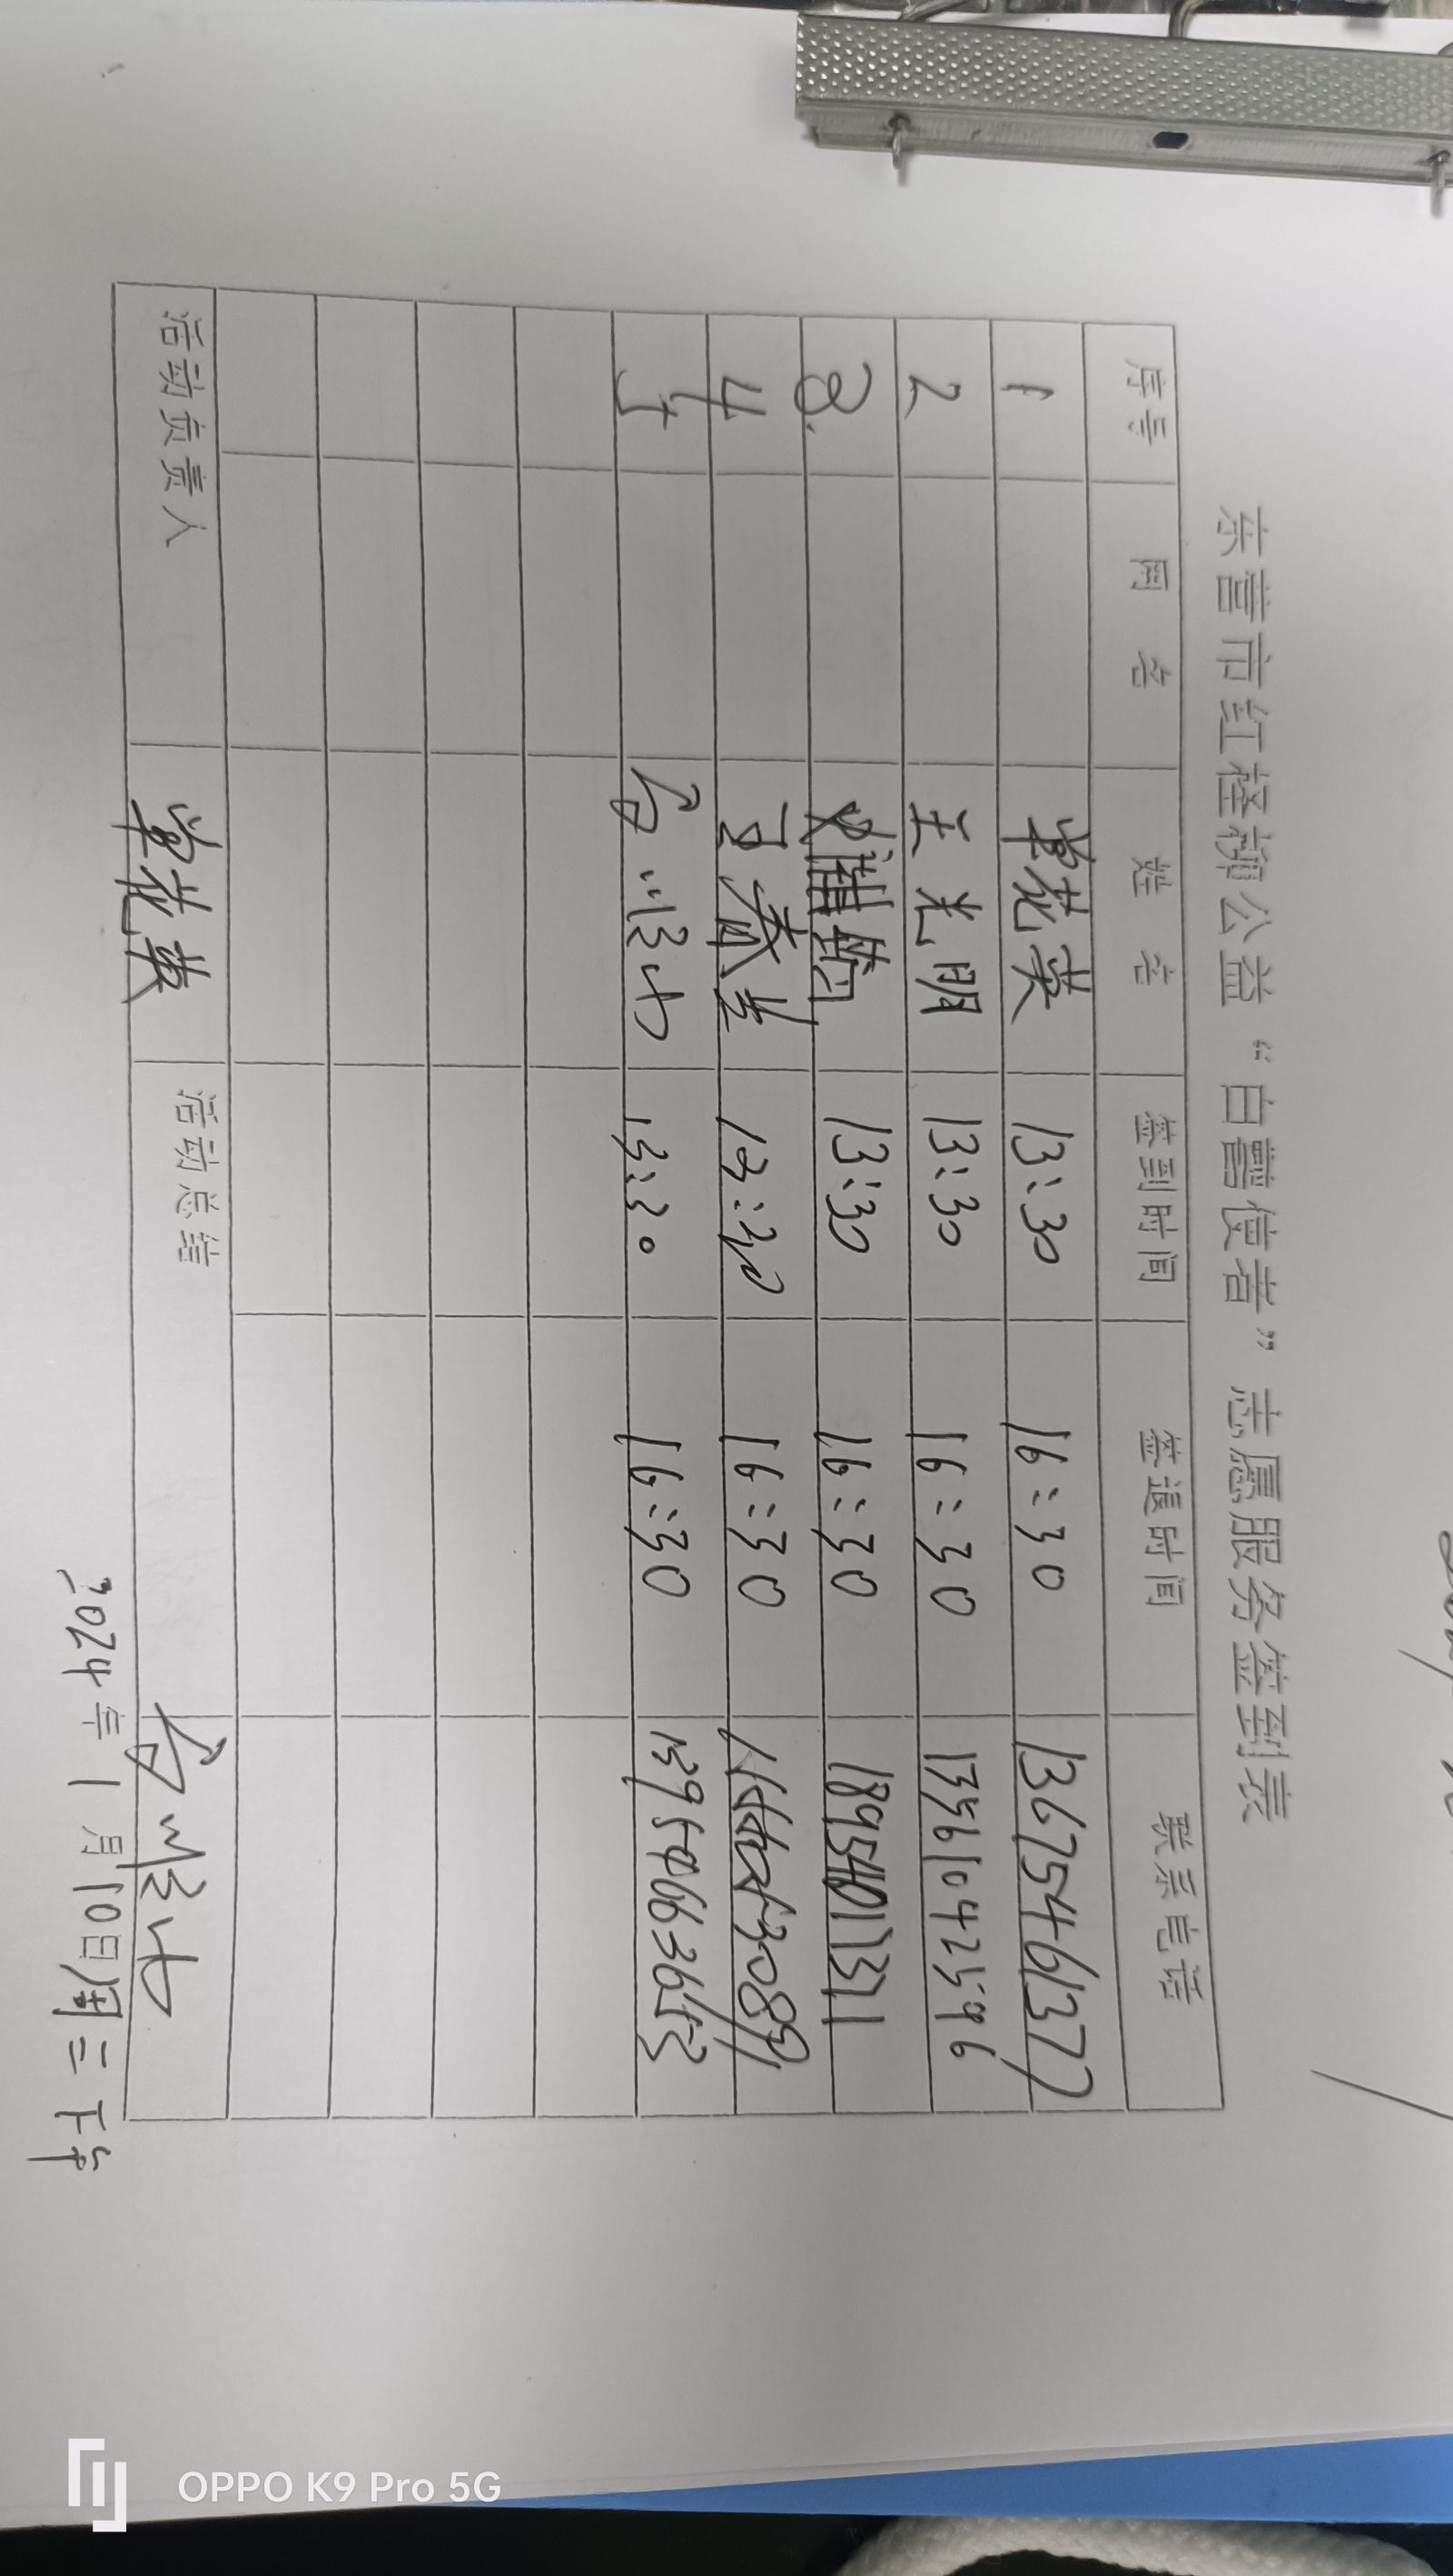 东营市红柽柳公益“白鹭使者”志愿服务签到表
序号 网 名 姓 名 签到时间 签退时间 联系电话
1 单花英 13:30 16:30 13675461377
2 王光明 13:30 16:30 13561042596
3. 13:30 16:30 18954601331
4 王春兰 13:30 16:30
5 13:30 16:30 13954663653
活动负责人 单花英 活动总结
2024年1月10日周三下午
OPPO K9 Pro 5G